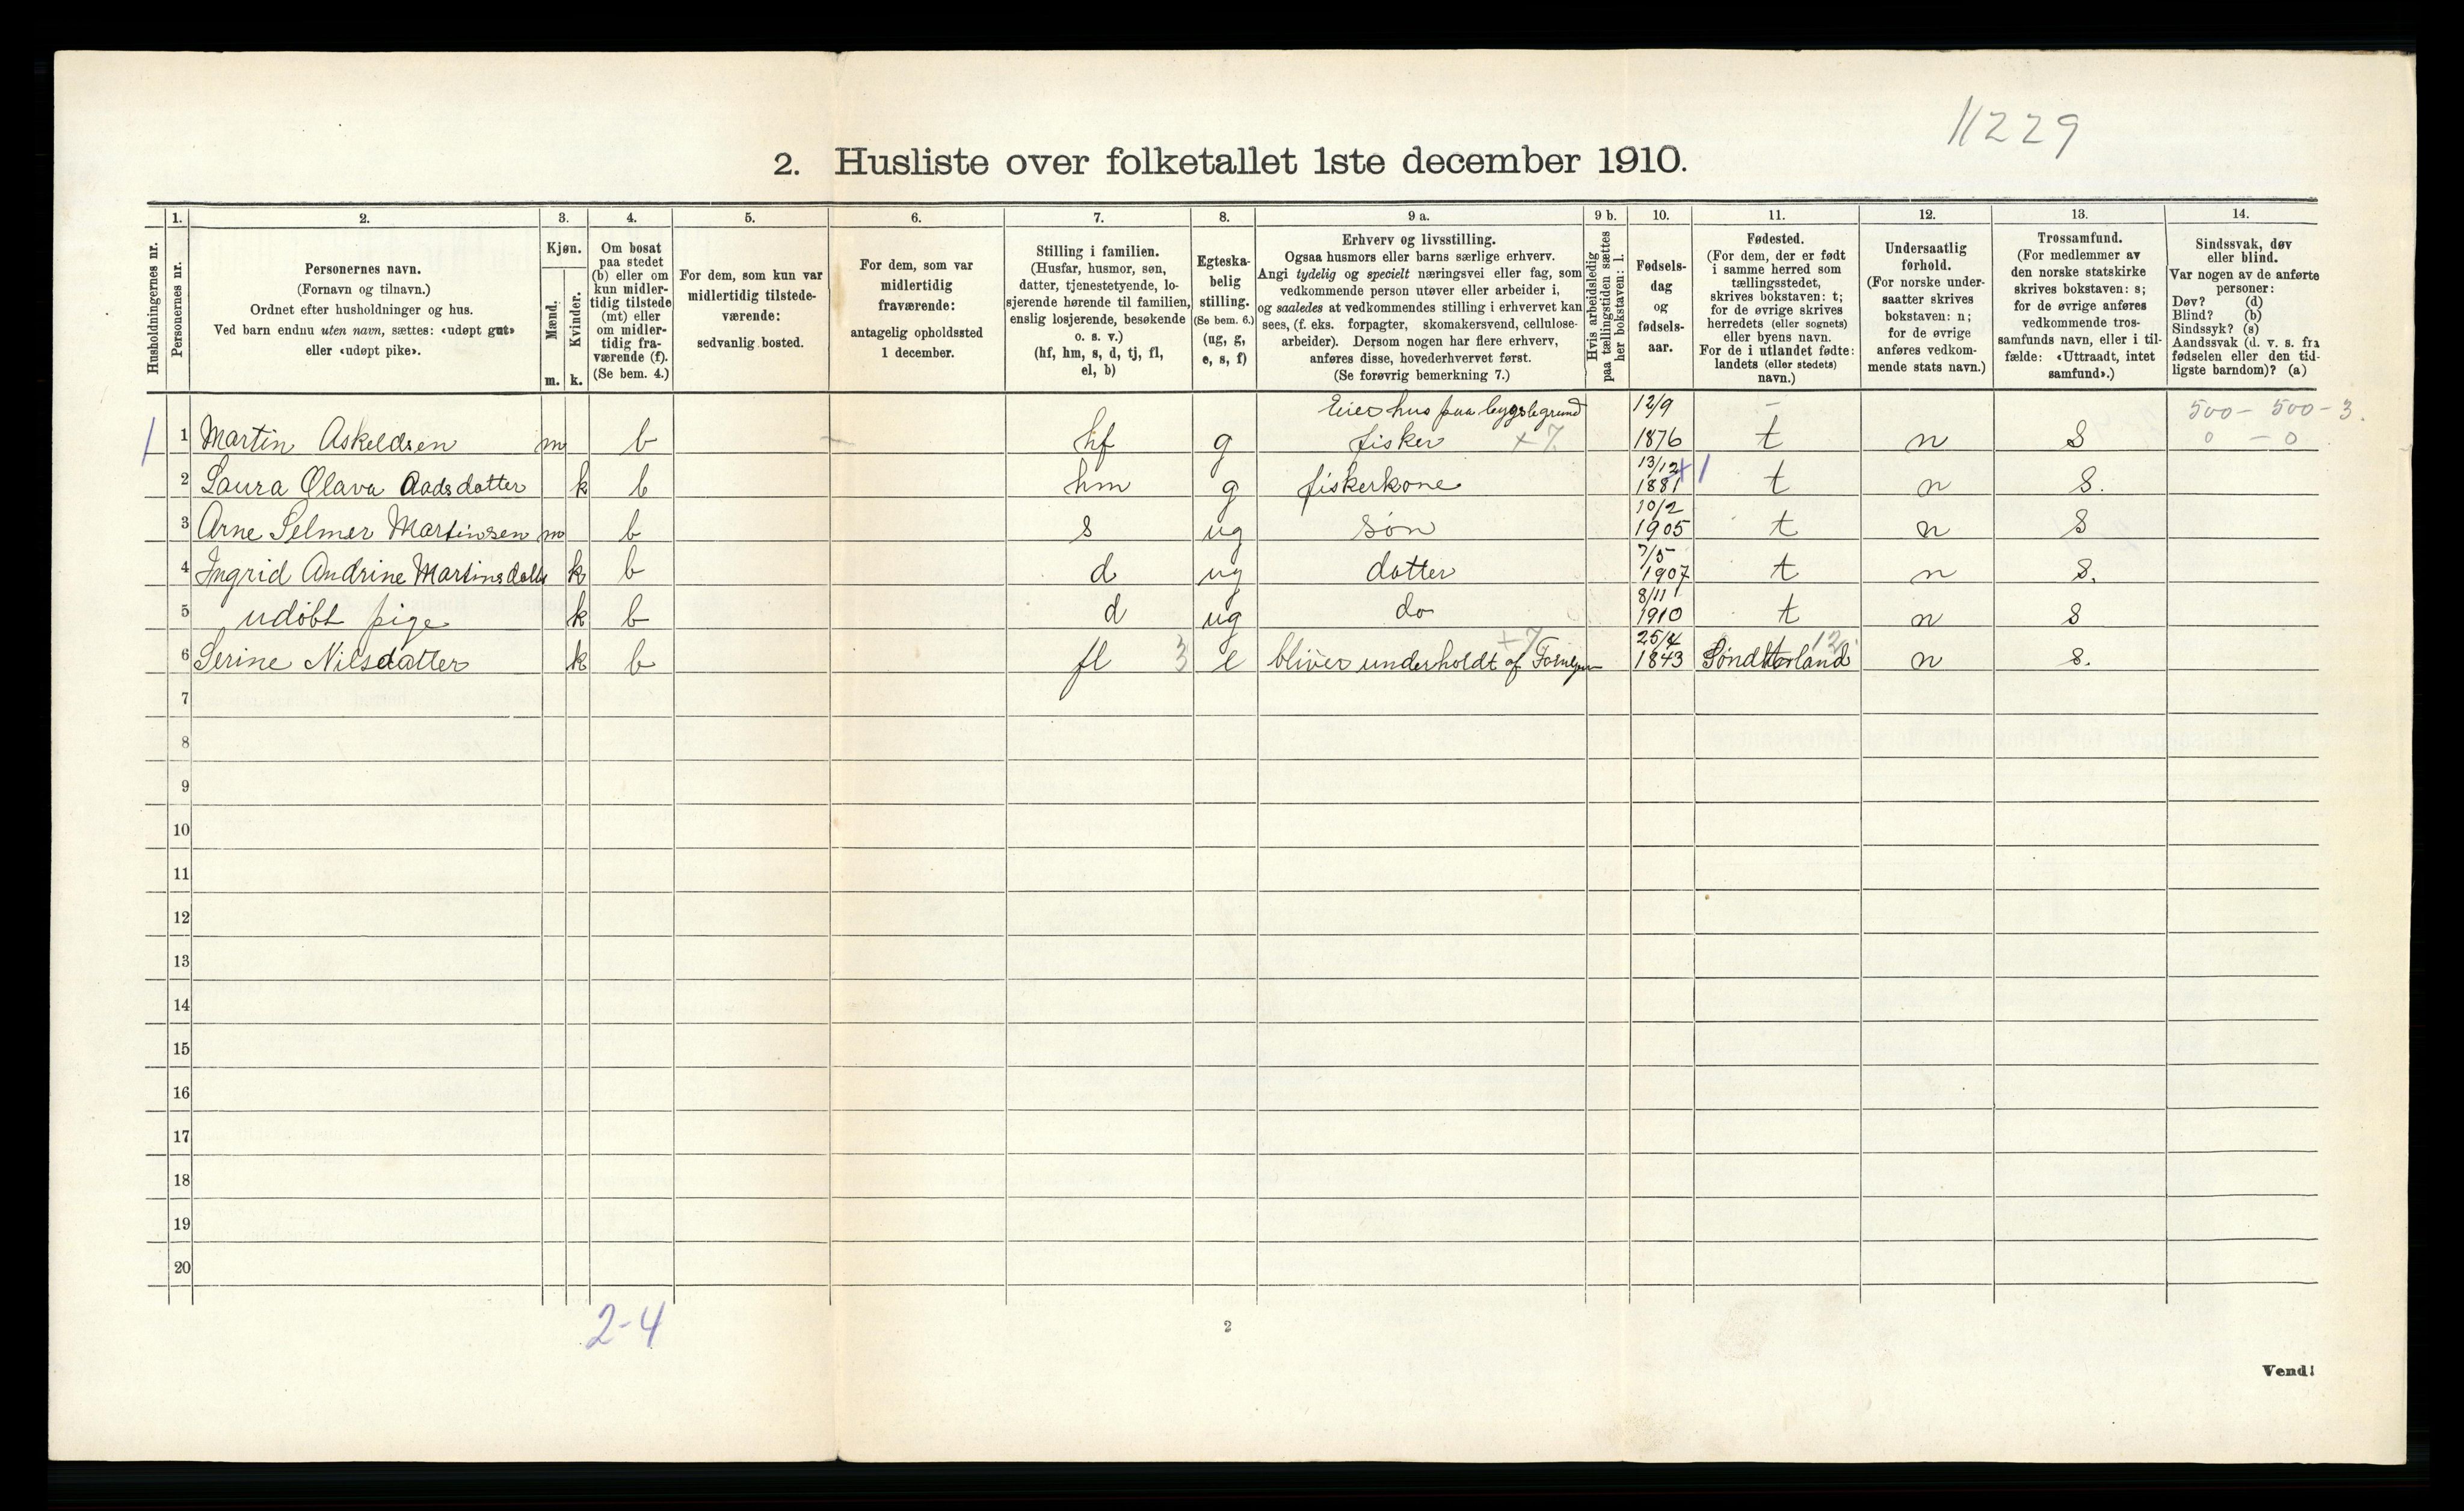 11229
2. Husliste over folketallet 1ste december 1910.
Husholdningernes nr.
1.
Personernes nr.
2.
Personernes navn.
(Fornavn og tilnavn.)
Ordnet efter husholdninger og hus.
Ved barn endnu uten navn, sættes: «udøpt gut»
eller «udøpt pike».
3.
Kjøn.
Mænd.
Kvinder.
m.
k.
4.
Om bosat
paa stedet
(b) eller om
kun midler-
tidig tilstede
(mt) eller
om midler-
tidig fra-
værende (f).
(Se bem. 4.)
5.
For dem, som kun var
midlertidig tilstede-
værende:
sedvanlig bosted.
6.
For dem, som var
midlertidig
fraværende:
antagelig opholdssted
1 december.
7.
Stilling i familien.
(Husfar, husmor, søn,
datter, tjenestetyende, lo-
sjerende hørende til familien,
enslig losjerende, besøkende
o. s. v.)
(hf, hm, s, d, tj, fl,
el, b)
8.
Egteska-
belig
stilling.
(Se bem. 6.)
(ug, g,
e, s, f)
9 a.
Erhverv og livsstilling.
Ogsaa husmors eller barns særlige erhverv.
Angi tydelig og specielt næringsvei eller fag, som
vedkommende person utøver eller arbeider i,
og saaledes at vedkommendes stilling i erhvervet kan
sees, (f. eks. forpagter, skomakersvend, cellulose-
arbeider). Dersom nogen har flere erhverv,
anføres disse, hovederhvervet først.
(Se forøvrig bemerkning 7.)
9 b.
Hvis arbeidsledig
paa tællingstiden sættes
her bokstaven: l.
10.
Fødsels-
dag
og
fødsels-
aar.
11.
Fødested.
(For dem, der er født
i samme herred som
tællingsstedet,
skrives bokstaven: t;
for de øvrige skrives
herredets (eller sognets)
eller byens navn.
For de i utlandet fødte:
landets (eller stedets)
navn.)
12.
Undersaatlig
forhold.
(For norske under-
saatter skrives
bokstaven: n;
for de øvrige
anføres vedkom-
mende stats navn.)
13.
Trossamfund.
(For medlemmer av
den norske statskirke
skrives bokstaven: s;
for de øvrige anføres
vedkommende tros-
samfunds navn, eller i til-
fælde: «Uttraadt, intet
samfund».)
14.
Sindssvak, døv
eller blind.
Var nogen av de anførte
personer:
Døv? (d)
Blind? (b)
Sindssyk? (s)
Aandssvak (d. v. s. fra
fødselen eller den tid-
ligste barndom)? (a)
Eier hus paa bygslegrund 12/9 - 500 - 500 - 3.
1 1 Martin Askeldsen m b hf g fisker +7 1876 t n S 0 - 0
13/12 + 1
2 Laura Olava Aadsdatter k b hm g fiskerkone 1881 t n S.
10/2
3 Arne Selmer Martinsen m b s ug søn 1905 t n S
7/5
4 Ingrid Andrine Martinsdatter k b d ug datter 1907 t n S.
8/11
5 udøbt pige k b d ug do 1910 t n S
+7 25/4 12
6 Serine Nilsdatter k b fl 3 e bliver underholdt af 1843 Søndhorland n S.
7
8
9
10
11
12
13
14
15
16
17
18
19
20
2-4
2
Vend!